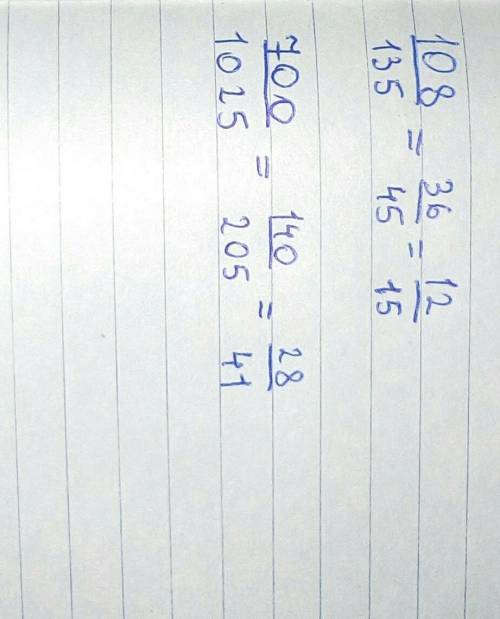 108/135 = 36/45 = 12/15
700/1025 = 140/205 = 28/41